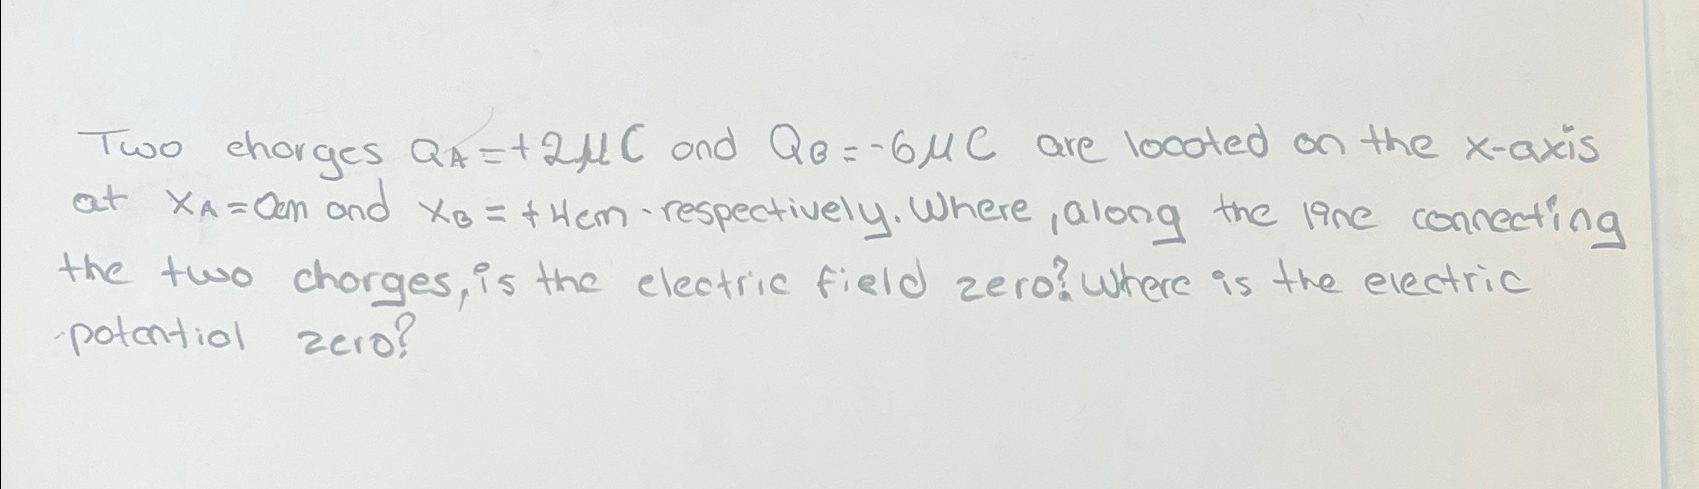 Two charges QA=+2μC and QB=-6μC are located on the x-axis
at xA=0cm and xB=+4cm respectively. Where, along the line connecting
the two charges, is the electric field zero? Where is the electric
potential zero?